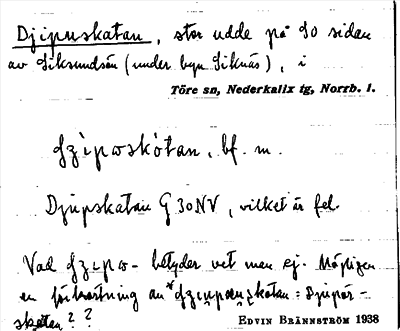 Djipuskatan, stor udde på SO sidan
av Siksundsön (under byn Siknäs), i
Töre sn, Nederkalix tg, Norrb. l.
bf. m.
Djupskatan G 30 NV, vilket är fel.
Vad betyder vet man ej. Möjligen
en förkortning av
skatan??
EDVIN BRÄNNSTRÖM 1938